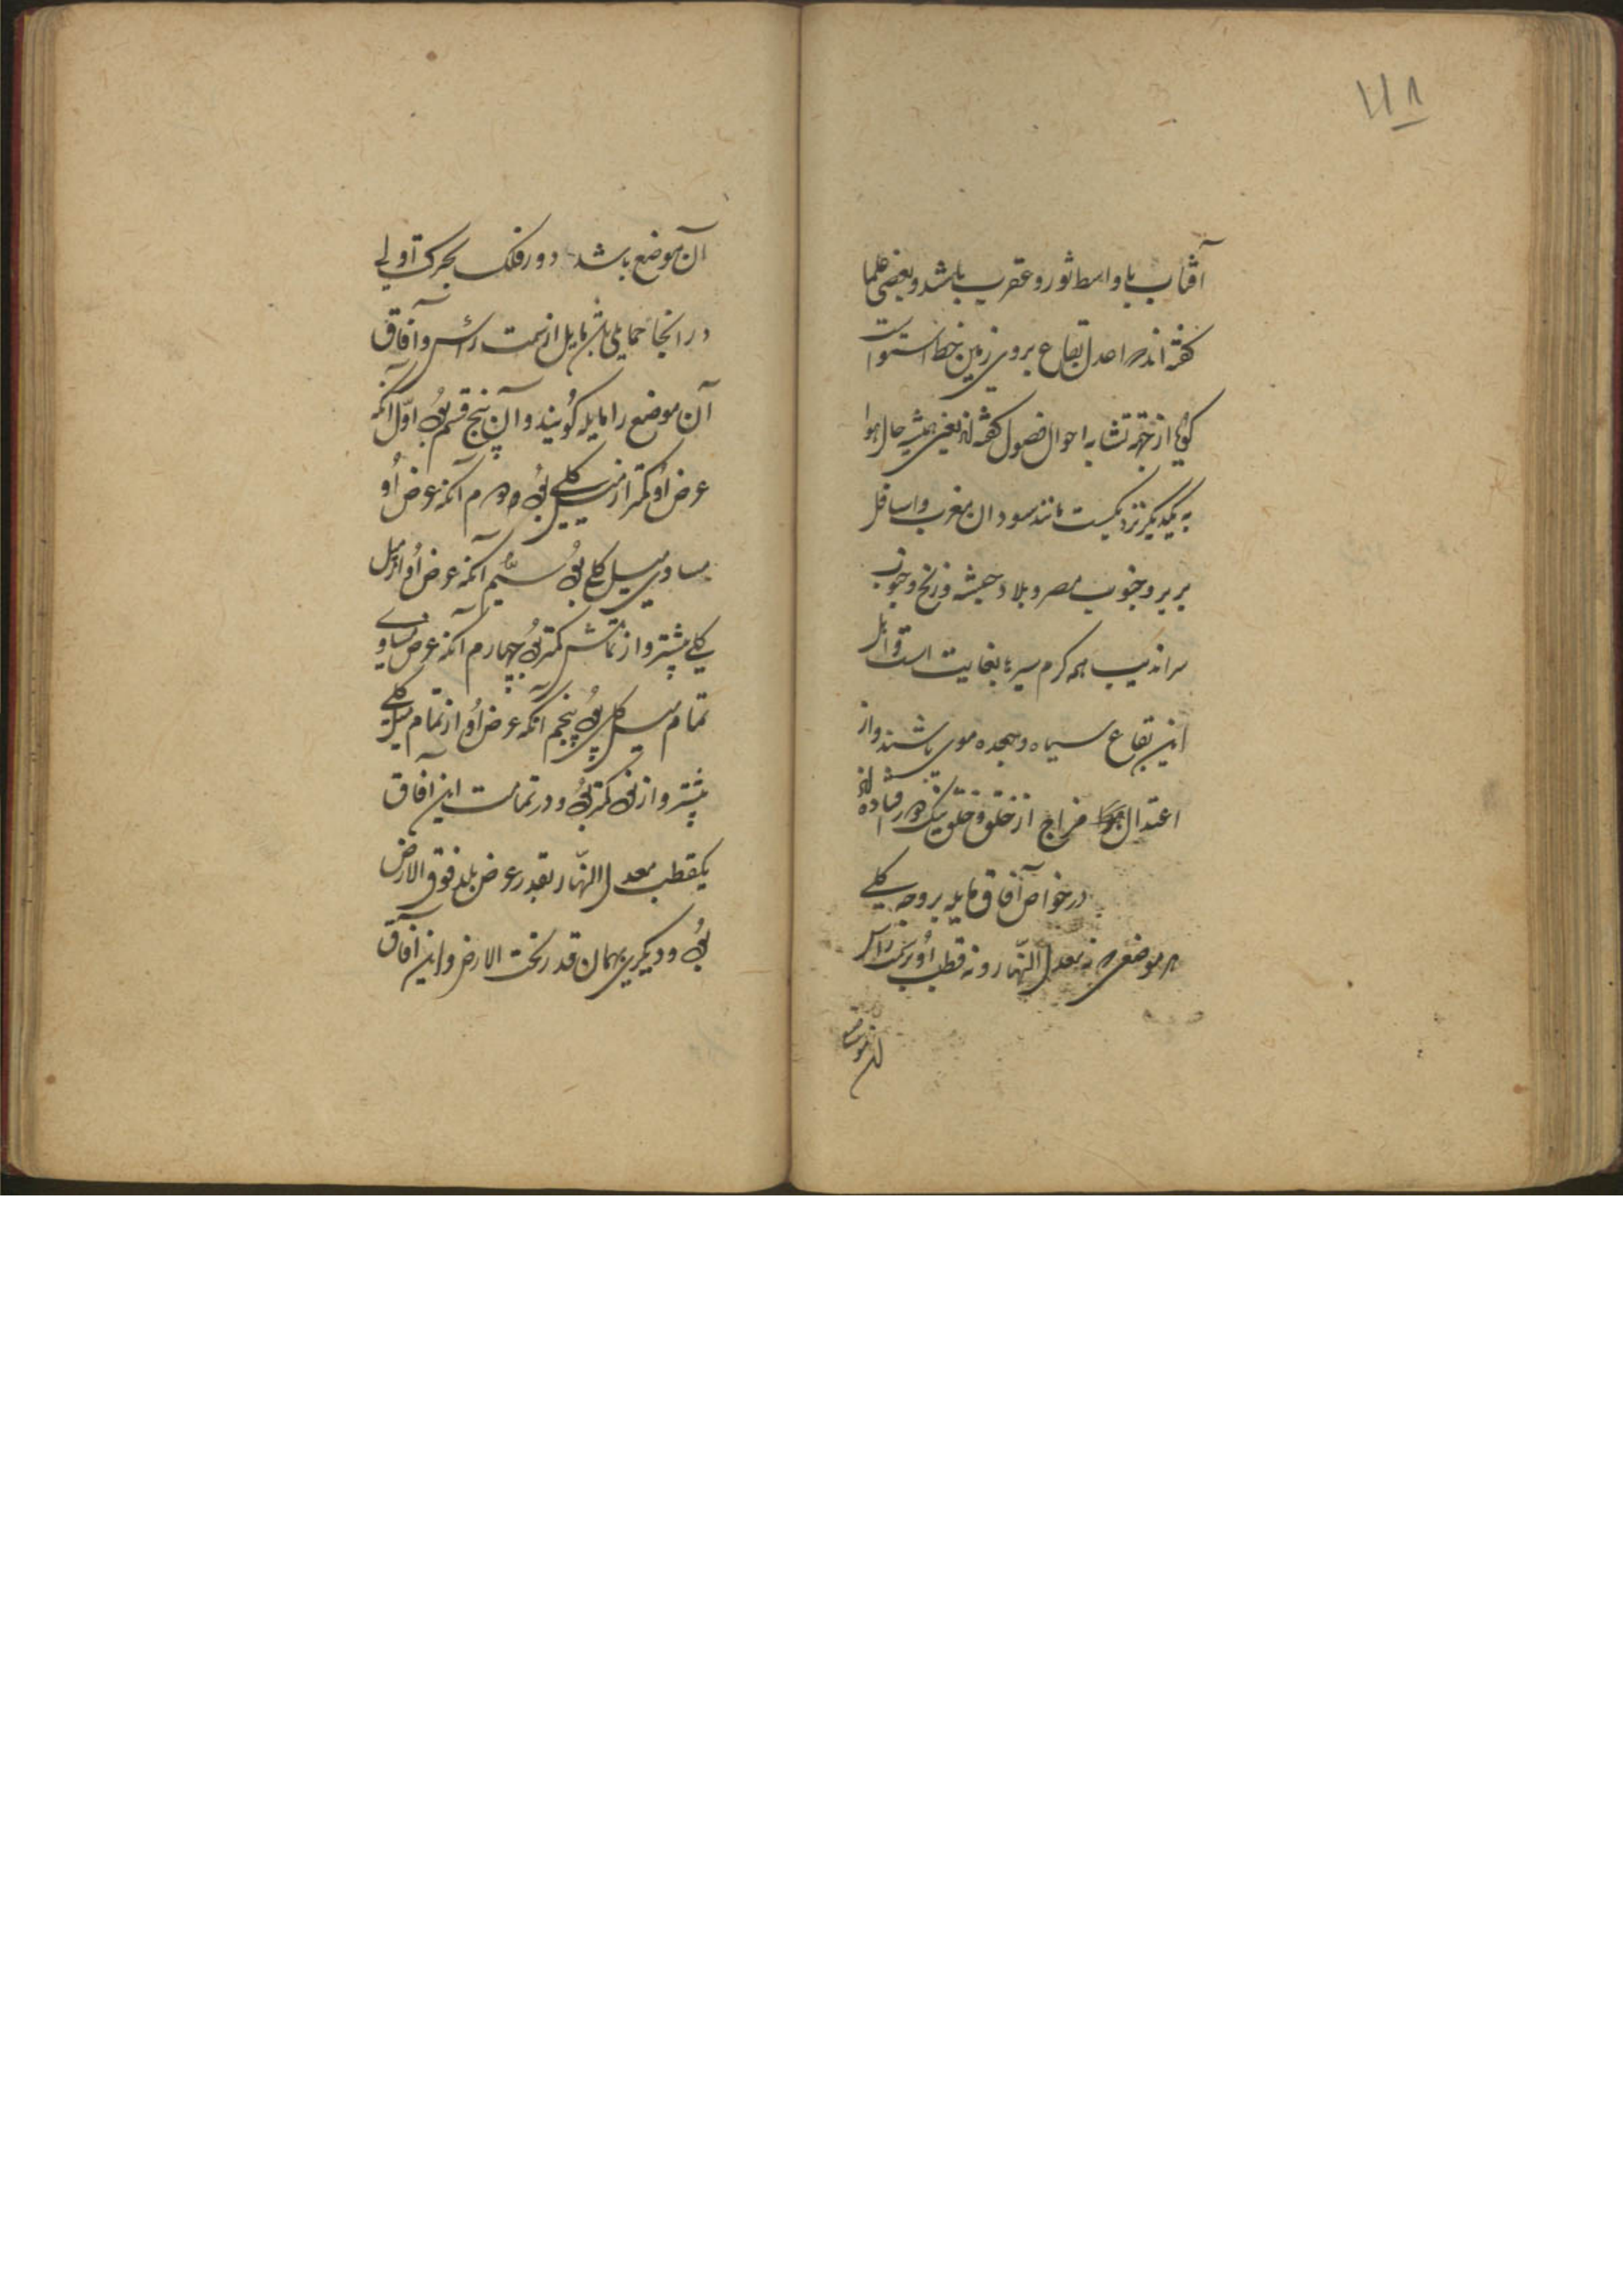 ۱۱۸
آفتاب باواسط ثور و عقرب باشد و بعضی علما
کفته اند که اعدل بقاع بروی زمین خط استواست
کویا از جهة تشابه احوال فصول کفته اند یعنی همیشه حال هوا
به یکدیگر نزدیکست مانند سودان مغرب و اسافل
بربر و جنوب مصر و بلاد حبشه و زنج و جنوب
سراندیب همه کرم سیر بغایت است و اهل
این بقاع سیاه و مجعد موی باشند و از
اعتدال مزاج از خلق و خلق نیک دور افتاده اند
در خواص آفاق مایله بر وجه کلی
هر موضعی که نه معدل النهار و نه قطب او بر سمت رأس
آن موضع باشد دور فلک بحرکت اولی
در انجا حمایلی باشد مایل از سمت رأس و آفاق
آن موضع را مایله کویند و آن پنج قسم بود اول آنکه
عرض او کمتر از میل کلی بود دوم آنکه عرض او
مساوی میل کلی بود سیم آنکه عرض او از میل
کلی بیشتر و از تمامش کمتر بود چهارم آنکه عرض مساوی
تمام میل کلی بود پنجم آنکه عرض او از تمام میل کلی
بیشتر و از ص کمتر بود و در تمامت این آفاق
یکقطب معدل النهار بقدر عرض بلد فوق الارض
بود و دیگری بهمان قدر تحت الارض و این آفاق